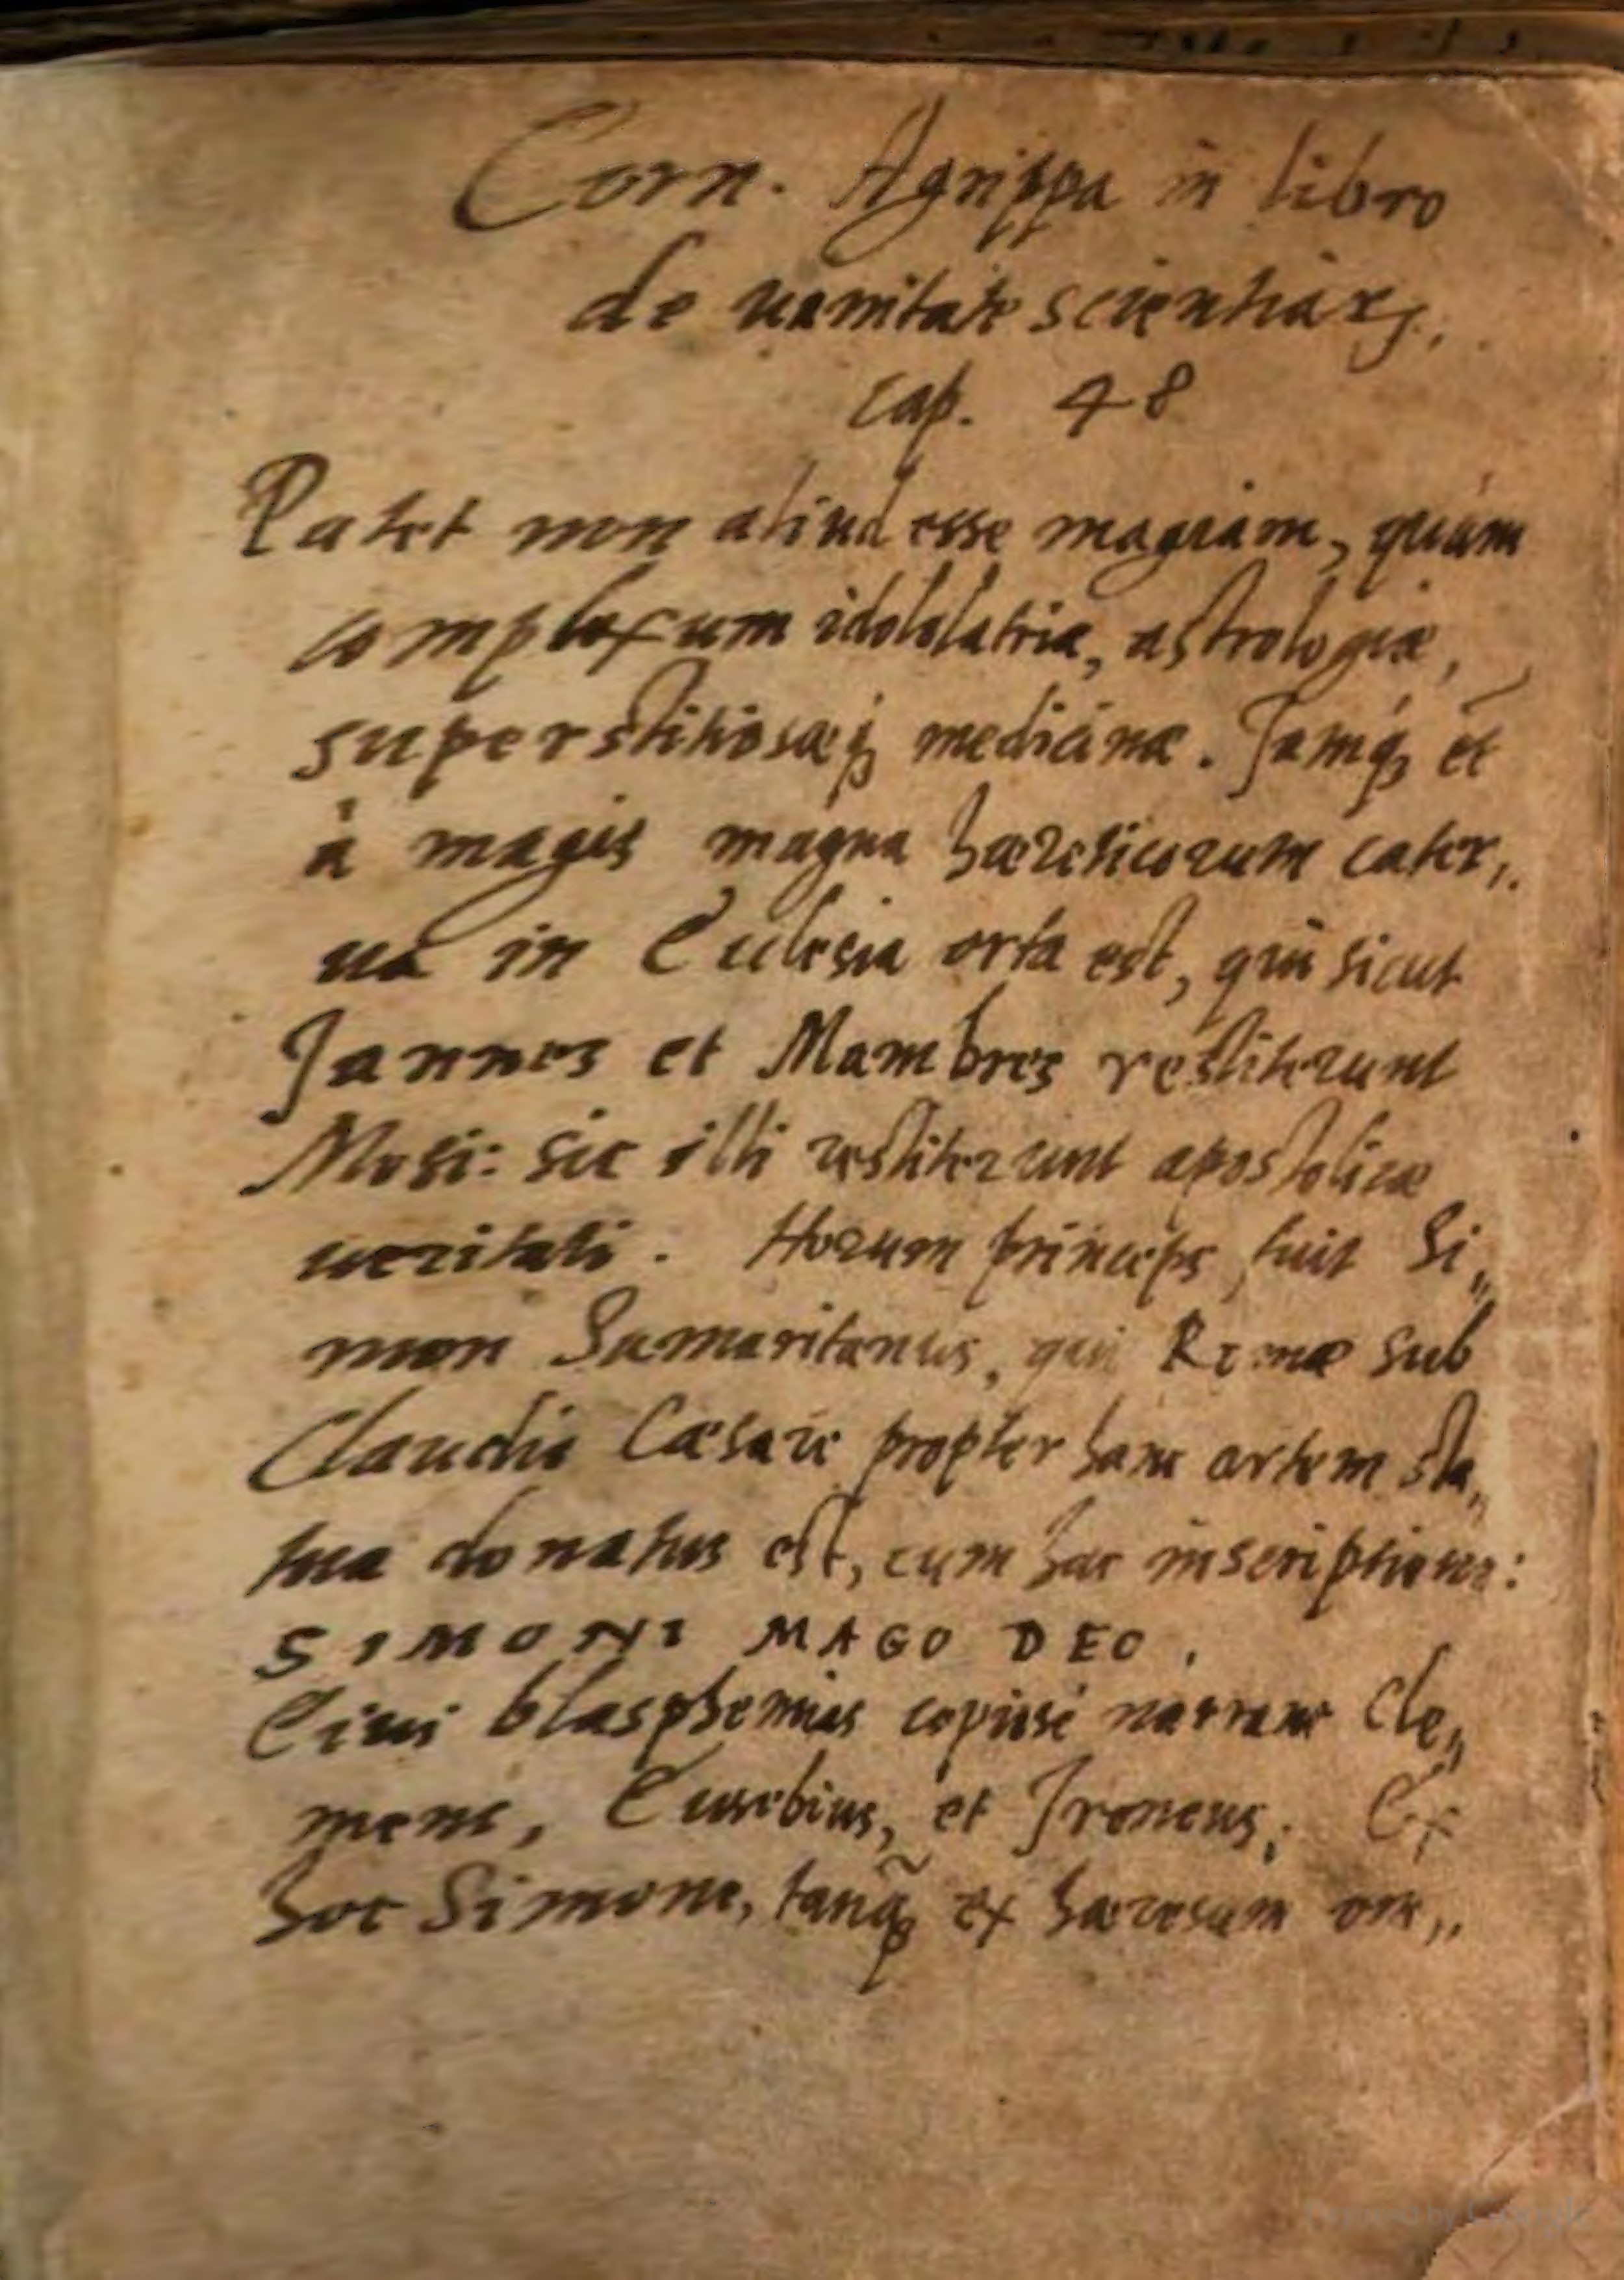 Corn. Agrippa in libro
de uanitate scientiarꝝ.
cap. 48
Patet non aliud esse magiam, quàm
complexum idololatriæ, astrologiæ,
superstitiosæq; medicinæ. Jamq; et
à magis magna hæreticorum cater,,
ua in Ecclesia orta est, qui sicut
Jannes et Mambres restiterunt
Mosi: sic illi restiterunt apostolicæ
ueritati. Horum princeps fuit Si,,
mon Samaritanus, qui Romæ sub
Claudio Cæsare propter hanc artem sta,,
tua donatus est, cum hac inscriptione:
SIMONI MAGO DEO.
Eius blasphemias copiosè narrant Cle,,
mens, Eusebius, et Ireneus. Ex
hoc Simone, tanq̃ ex hæresum om,,